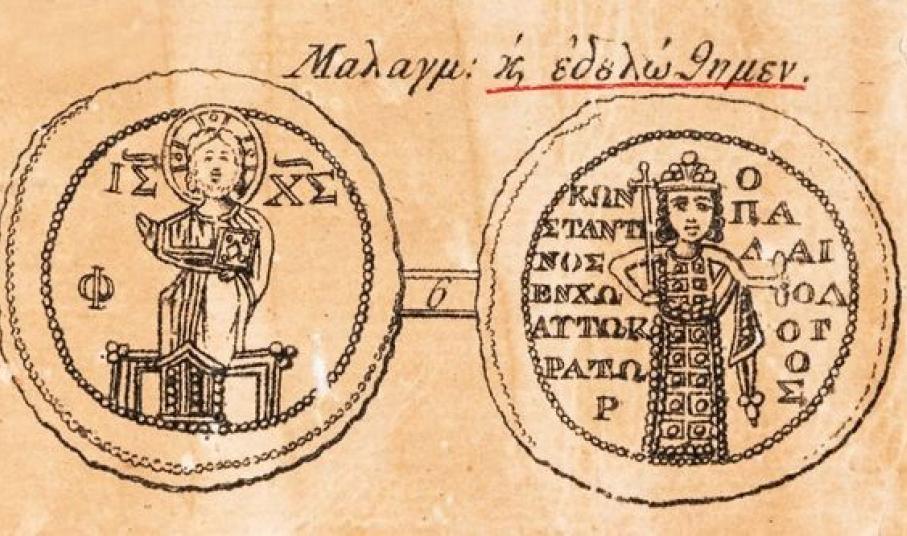 Μαλαγμ: κ, ἐδελώθημεν.
ΙΣ ΧΣ
Φ
6
ΚΩΝ
ΣΤΑΝΤΙ
ΝΟΣ
ΕΝΧΩ
ΑΥΤΩΚ
ΡΑΤΩ
Ρ
Ο
ΠΑ
ΛΑΙ
ΟΛ
ΟΓ
Ο
Σ